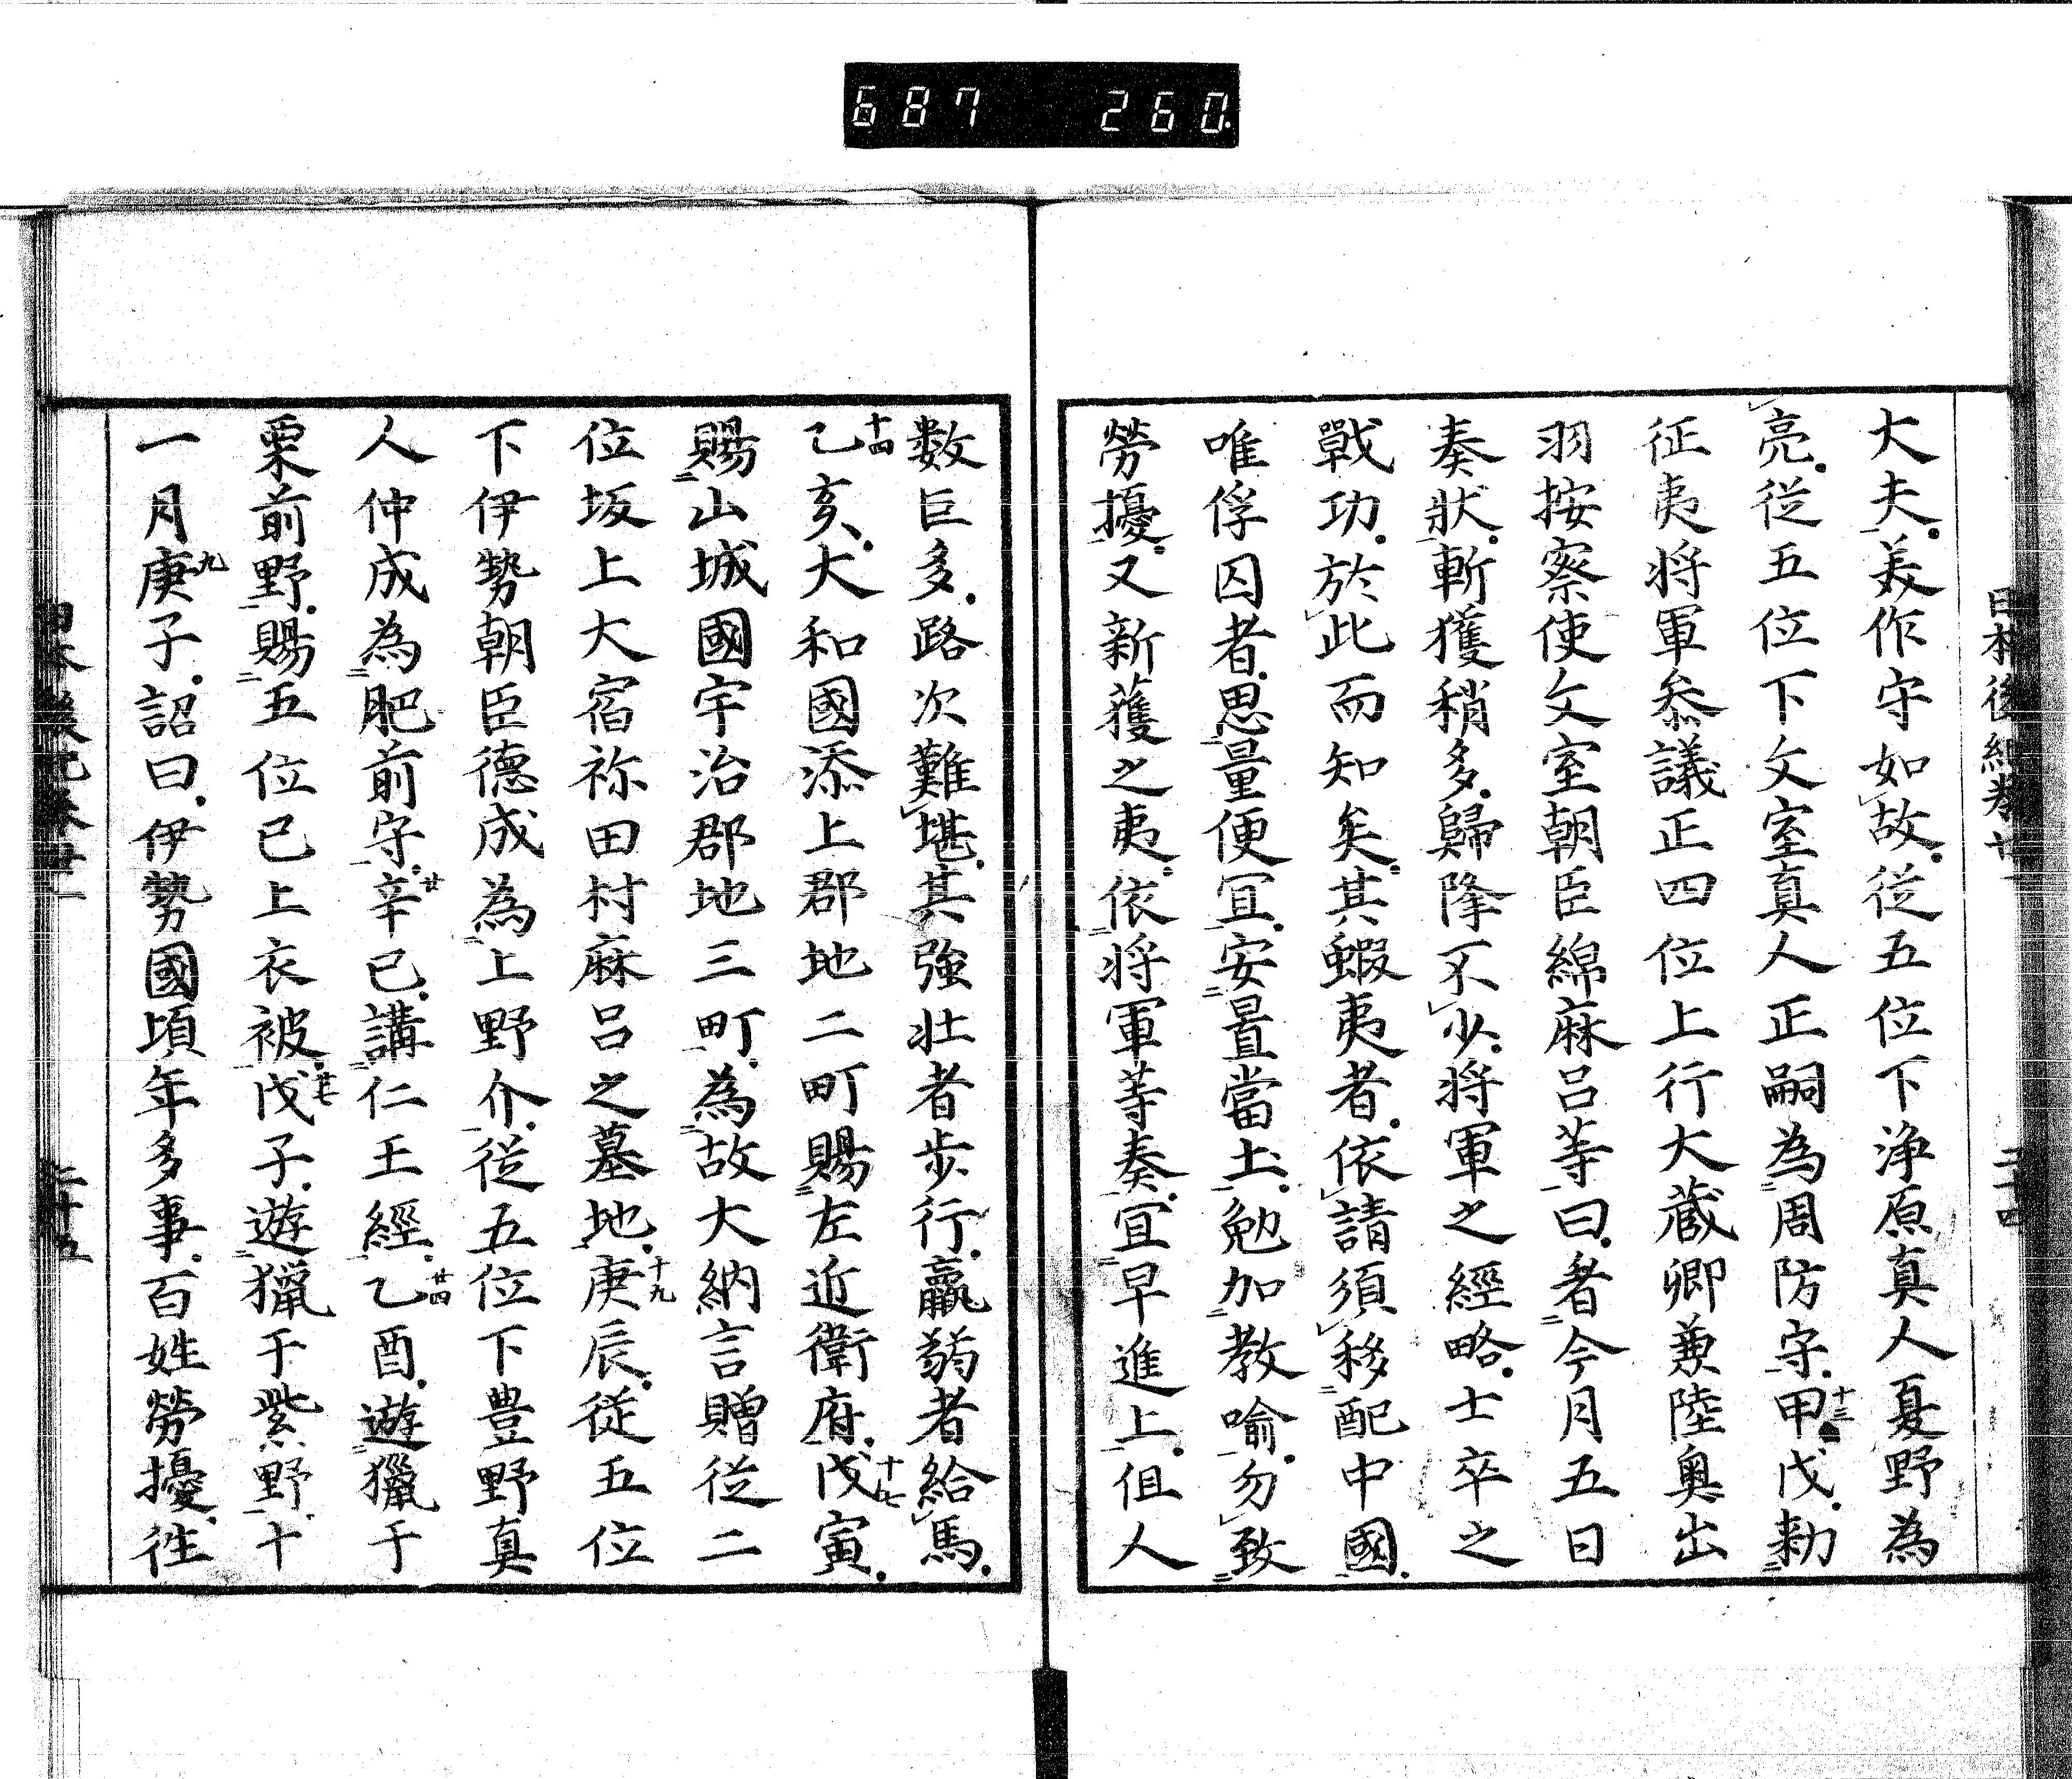 687 260
日本後紀卷廿一 二十四
大夫美作守如故從五位下浄原真人夏野為
亮從五位下文室真人正嗣為周防守十三甲戌勅
征夷将軍参議正四位上行大蔵卿兼陸奥出
羽按察使文室朝臣綿麻呂等曰者今月五日
奏状斬獲稍多歸降不少将軍之經略士卒之
戰功於此而知矣其蝦夷者依請須移配中國
唯俘囚者思量便宜安置當土勉加教喻勿致
勞擾又新獲之夷依将軍等奏宜早進上但人
数巨多路次難堪其強壮者歩行羸弱者給馬
十四乙亥大和國添上郡地二町賜左近衛府十七戊寅
賜山城國宇治郡地三町為故大納言贈従二
位坂上大宿祢田村麻呂之墓地十九庚辰従五位
下伊勢朝臣德成為上野介従五位下豊野真
人仲成為肥前守廿辛巳講仁王經廿四乙酉遊獵于
栗前野賜五位已上衣被廿七戊子遊獵于紫野十
一月九庚子詔曰伊勢國頃年多事百姓勞擾往
日本後紀卷廿一 二十五